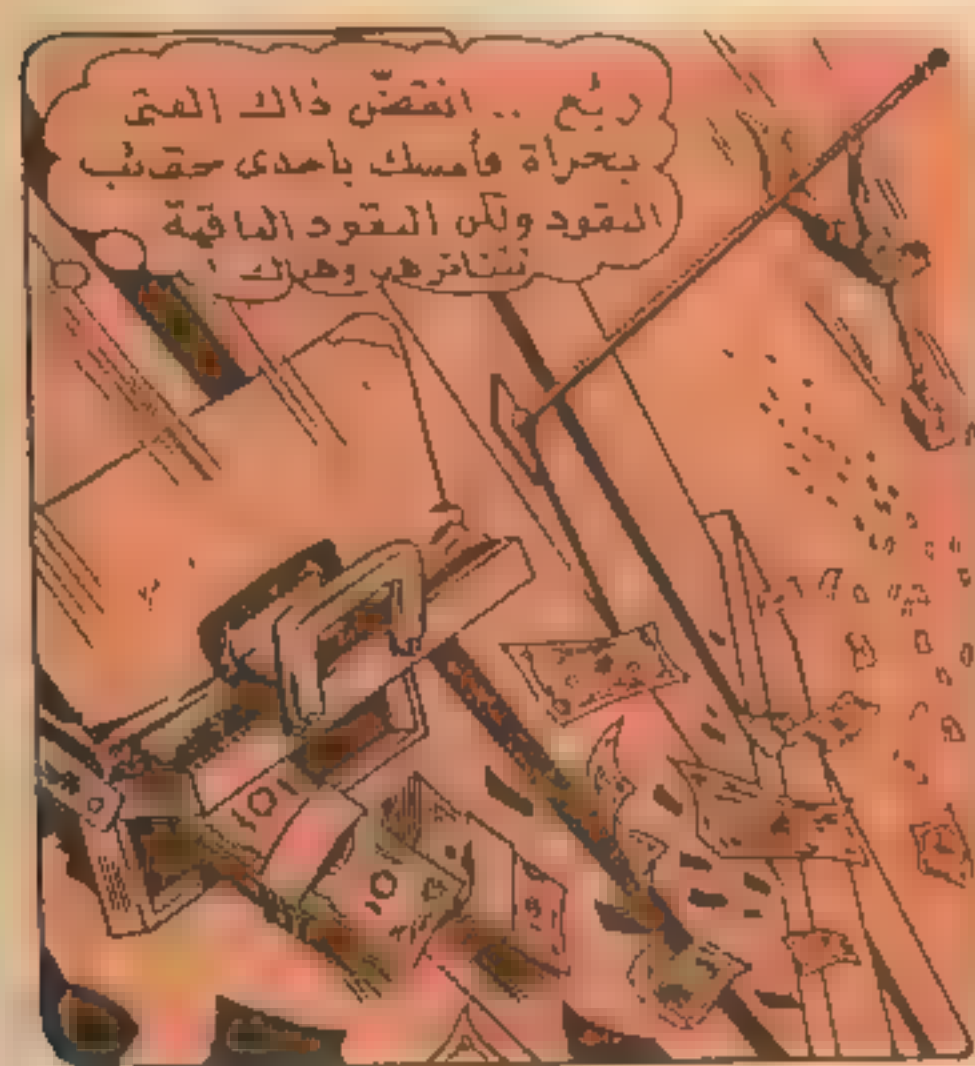 رائع .. انقضّ ذاك الفتى
بجرأة فأمسك بإحدى حقائب
النقود ولكن النقود الباقية
تتناثر هنا وهناك !
10
10